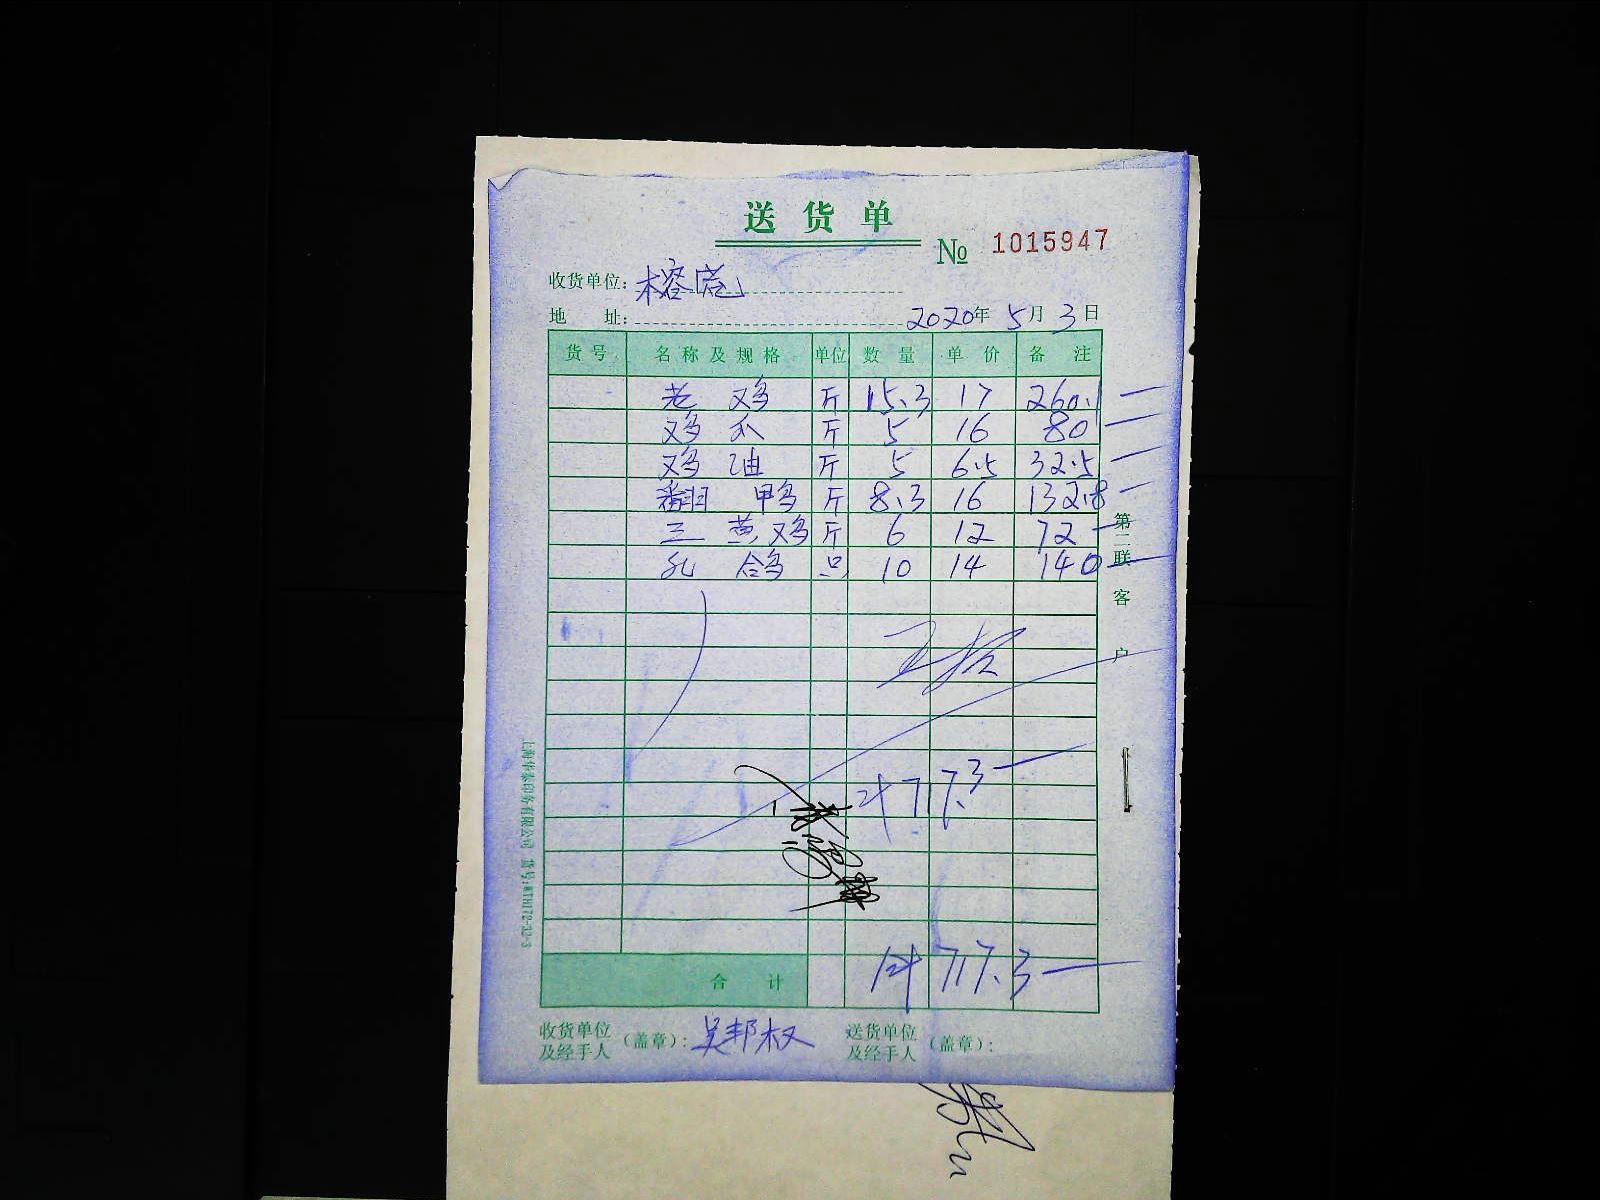 送货单
№ 1015947
收货单位：榕庭
地 址： 2020年5月3日
货号 名称及规格 单位 数量 单价 备注
老鸡 斤 15.3 17 260.1
鸡爪 斤 5 16 80
鸡油 斤 5 6.5 32.5
翻鸭 斤 8.3 16 132.8
三黄鸡 斤 6 12 72
乳鸽 只 10 14 140
第二联 客户
计717.3
合计 计717.3
收货单位及经手人（盖章）：吴邦权 送货单位及经手人（盖章）：
上海华泰印务有限公司 货号:WTH172-32-3